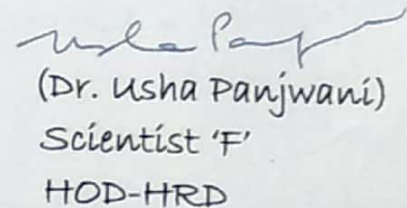 Usha Pan
(Dr. Usha Panjwani)
Scientist 'F'
HOD-HRD